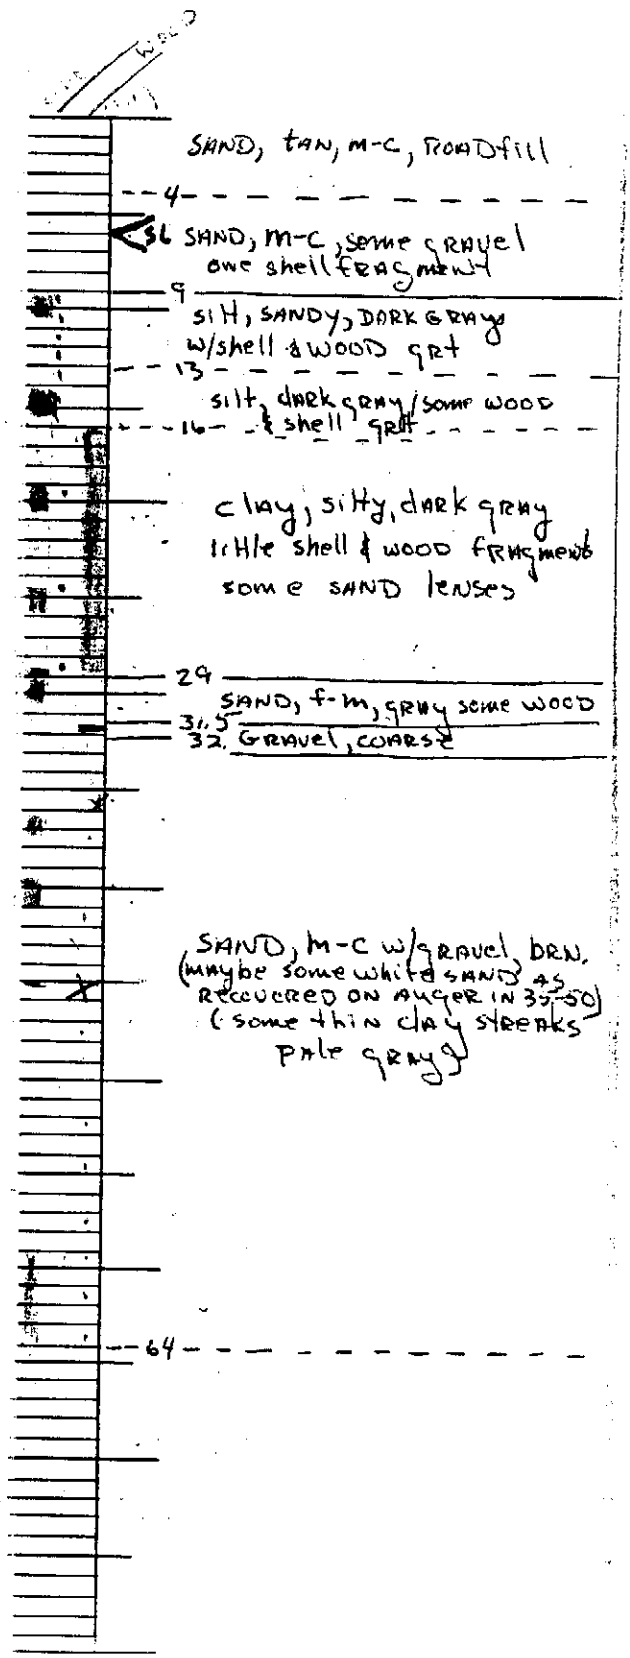 WOOD
SAND, tAN, M-C, ROADfill
4
SAND, M-C, some gRAVel
one shell fRAGmeNt
9
silt, SANDY, DARK GRAY
w/shell & WOOD grt
13
silt, dARK gRAY/some WOOD
16 & shell grt
clAy, silty, dARK gRAy
little shell & WOOD fRAgmeNts
some SAND leNses
29
SAND, f-m, gRAy some WOOD
31.5
32. GRAVel, COARSE
SAND, M-C w/gRAVel, bRN.
(mAybe some white SAND AS
RECOVERED ON AUGER IN 35-50)
(some thiN clAy STREAKS
pAle gRAy)
64